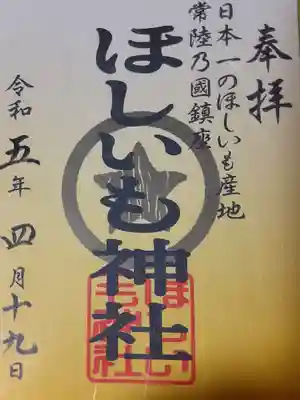 奉拝
日本一のほしいも産地
常陸乃國鎮座
ほしいも神社
ほしいも神社
令和五年四月十九日